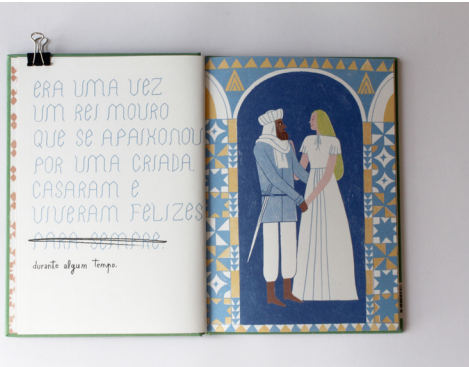 ERA UMA VEZ
UM REI MOURO
QUE SE APAIXONOU
POR UMA CRIADA
CASARAM E
VIVERAM FELIZES
PARA SEMPRE.
durante algum tempo.